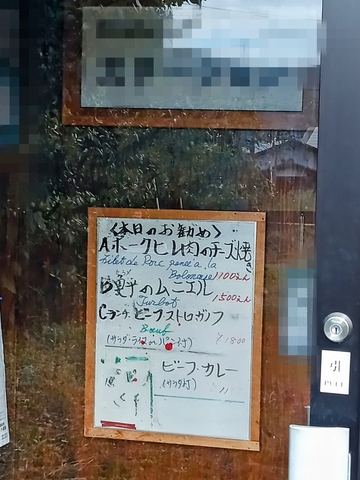 <本日のお勧め>
A.ポークヒレ肉のチーズ焼き
Filet de Porc panee a la
Bolonaise 1100えん
のムニエル
Turbot 1500えん
C ランチ ビーフストロガノフ
Bœuf
(サラダ・ライス or パン付) ¥1800
ビーフ・カレー
(サラダ付) 〃
引
PULL